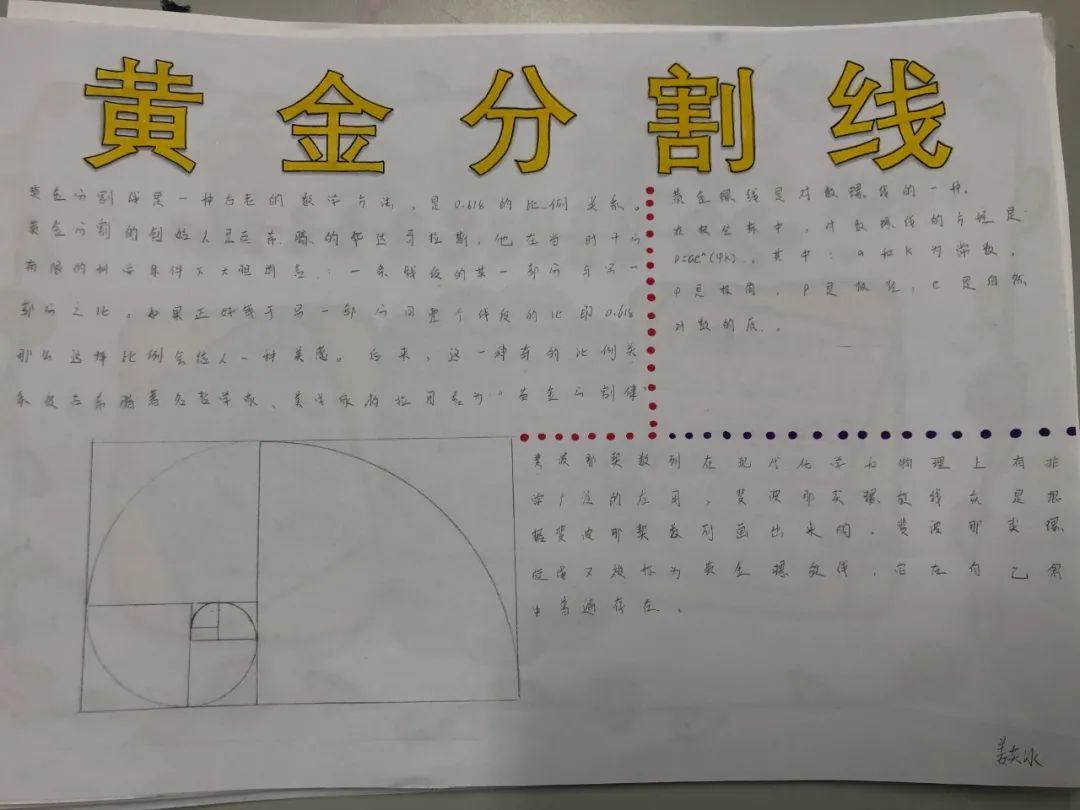 黄金分割线
黄金分割线是一种古老的数学方法，是0.618的比例关系。
黄金分割的创始人是古希腊的毕达哥拉斯，他在当时十分
有限的科学条件下大胆断言：一条线段的某一部分与另一
部分之比。如果正好等于另一部分同整个线段的比即0.618
那么这样比例会给人一种美感。后来，这一神奇的比例关
系被古希腊著名哲学家、美学家柏拉图誉为“黄金分割律”
黄金螺线是对数螺线的一种。
在极坐标中，对数螺线的方程是
ρ=ae^(φk)，其中：a和K为常数，
φ是极角，ρ是极径，e是自然
对数的底。
斐波那契数列在现代化学和物理上有非
常广泛的应用，斐波那契螺旋线亦是根
据斐波那契数列画出来的，斐波那契螺
旋线又被称为黄金螺旋线，它在自己然
中普遍存在、